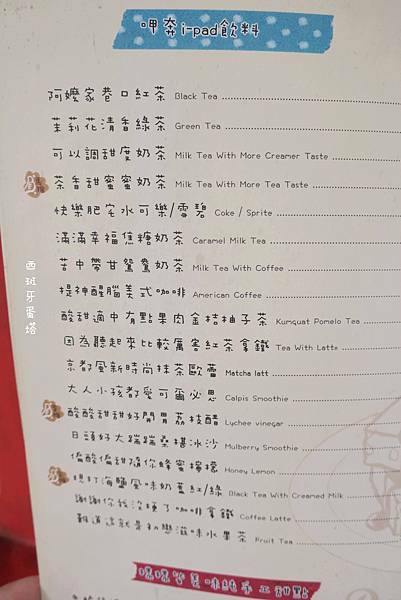 呷奔i-pad飲料
阿嬤家巷口紅茶 Black Tea
茉莉花清香綠茶 Green Tea
可以調甜度奶茶 Milk Tea With More Creamer Taste
茶香甜蜜蜜奶茶 Milk Tea With More Tea Taste
快樂肥宅水可樂/雪碧 Coke / Sprite
滿滿幸福焦糖奶茶 Caramel Milk Tea
苦中帶甘鴛鴦奶茶 Milk Tea With Coffee
提神醒腦美式咖啡 American Coffee
酸甜適中有點果肉金桔柚子茶 Kumquat Pomelo Tea
因為聽起來比較厲害紅茶拿鐵 Tea With Latte
京都風新時尚抹茶歐蕾 Matcha latt
大人小孩都愛可爾必思 Calpis Smoothie
酸酸甜甜好開胃荔枝醋 Lychee vinegar
日頭好大蹦蹦桑椹冰沙 Mulberry Smoothie
偏酸偏甜隨你蜂蜜檸檬 Honey Lemon
現打海鹽風味奶蓋紅/綠 Black Tea With Creamed Milk
謝謝你我沒睡了咖啡拿鐵 Coffee Latte
難道這就是初戀滋味水果茶 Fruit Tea
樣樣皆美味純手工甜點
西班牙蛋塔